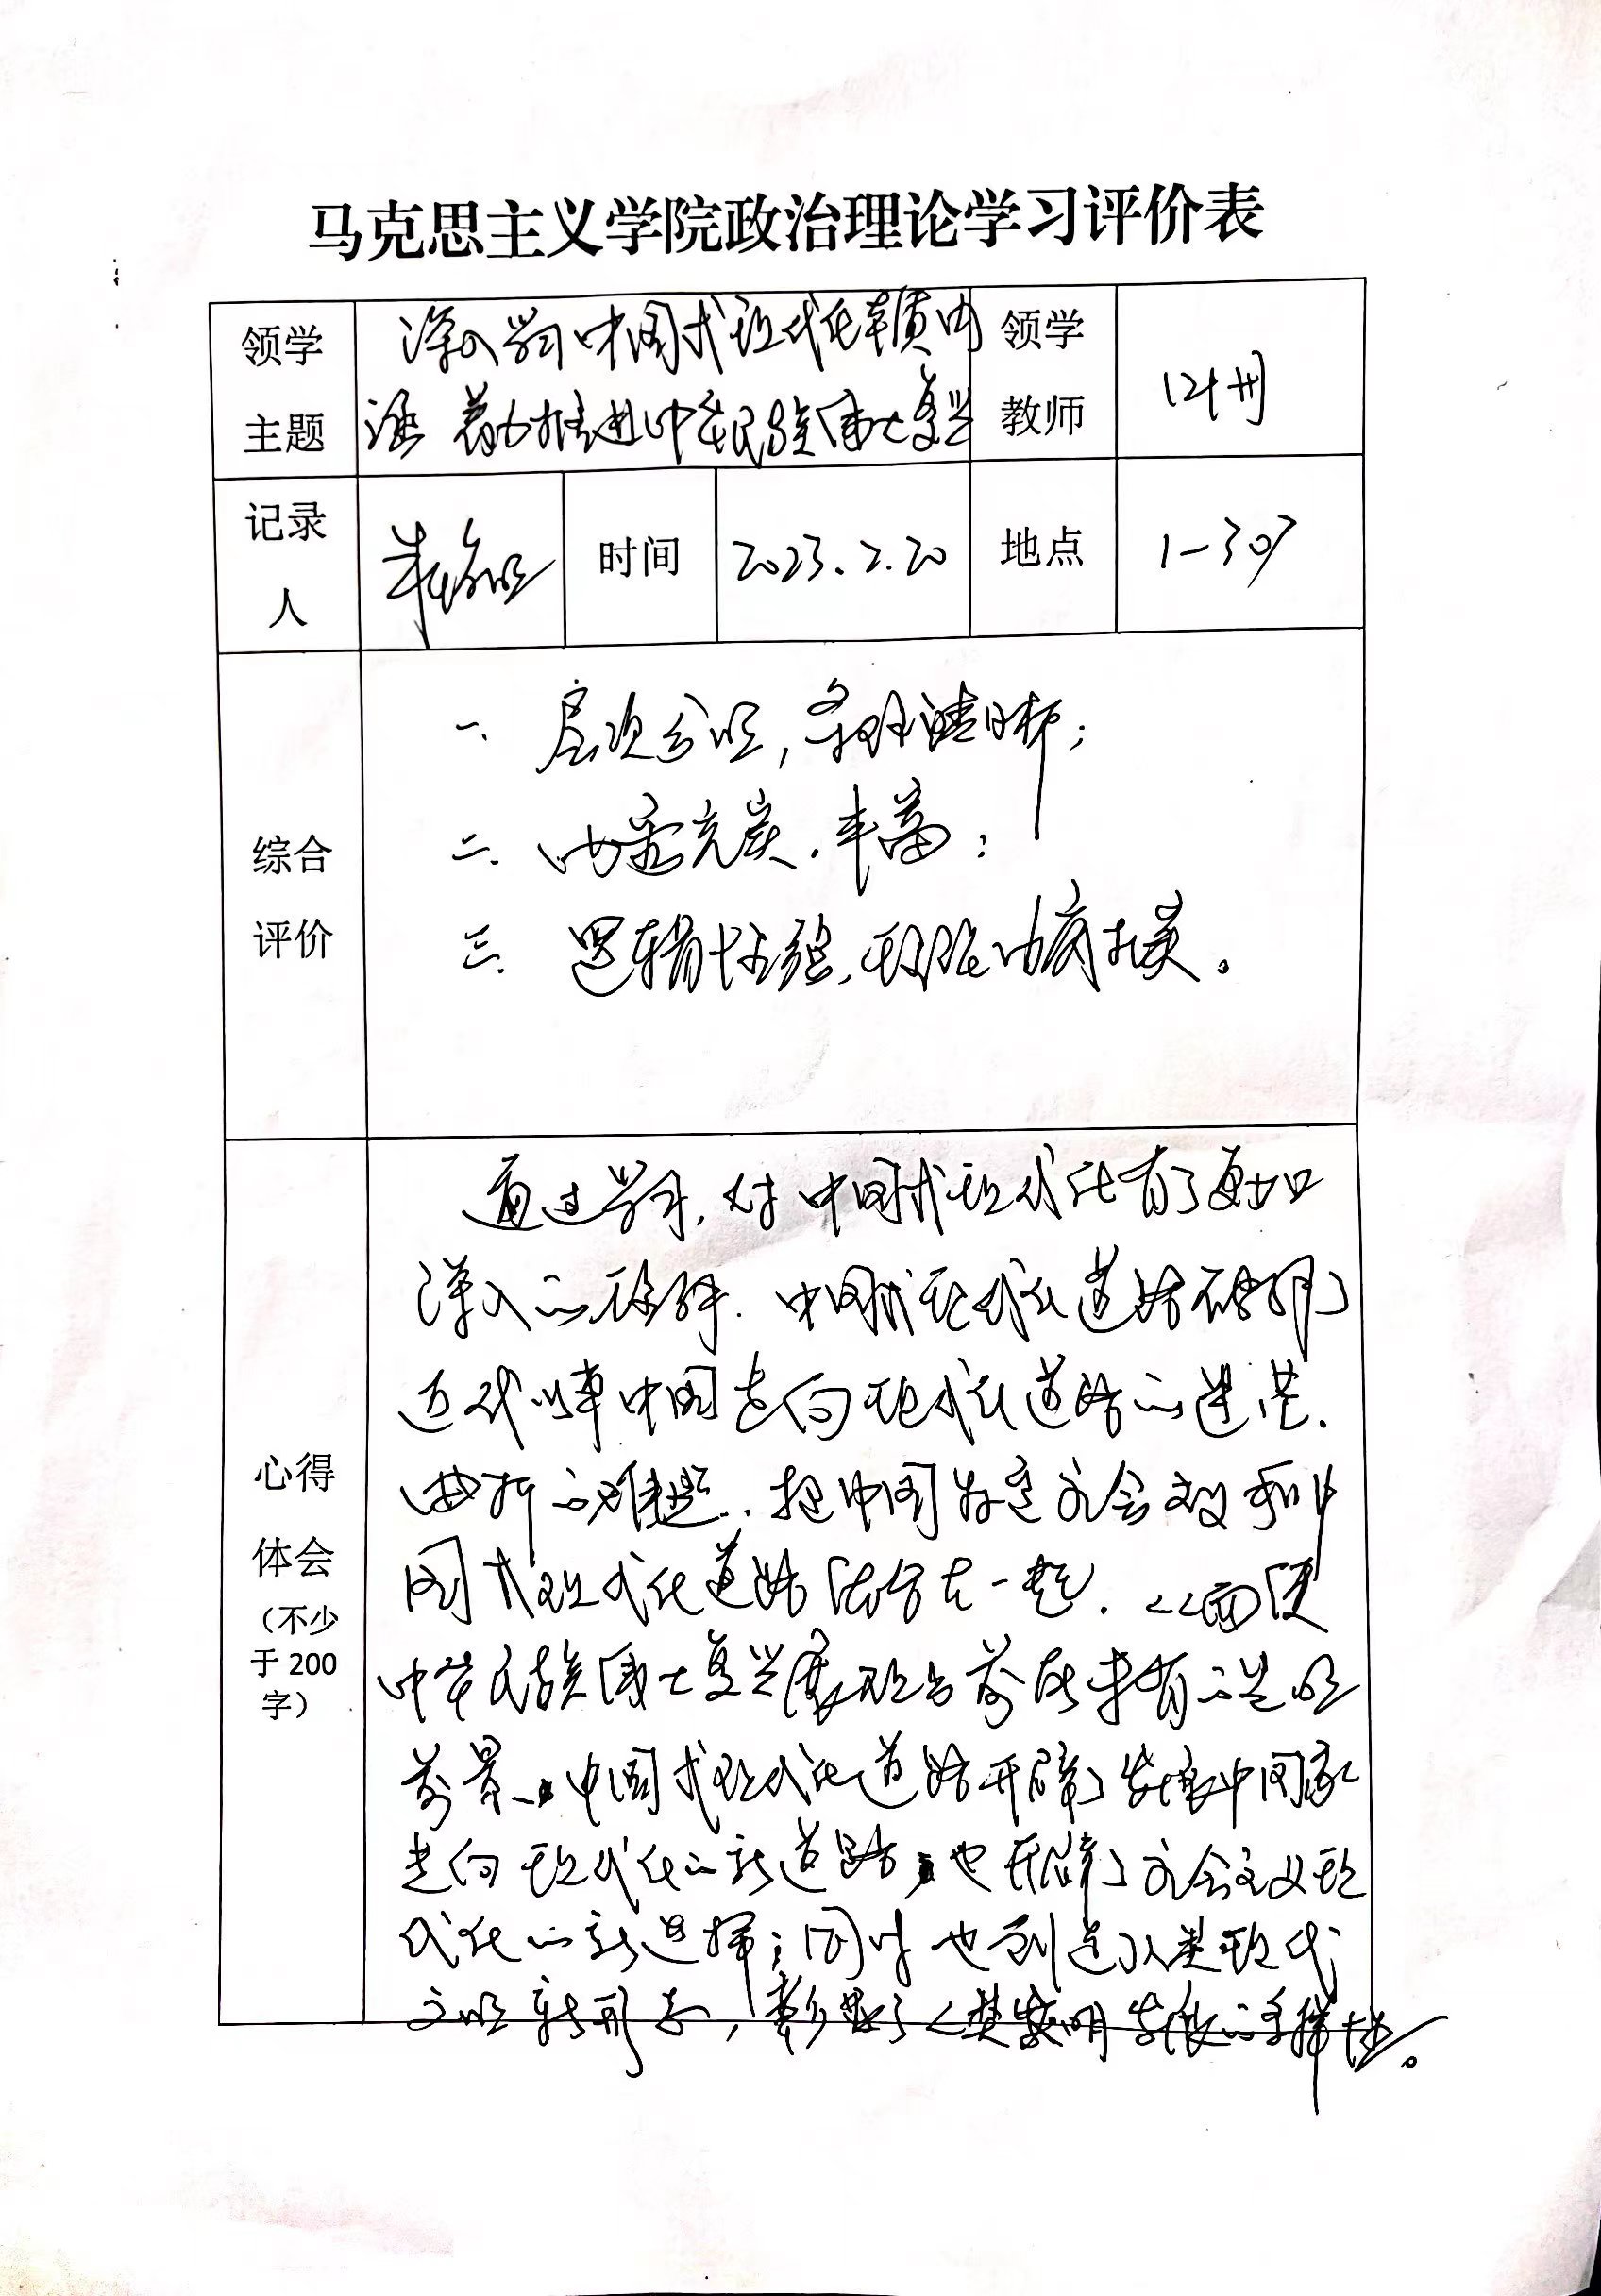 马克思主义学院政治理论学习评价表
领学
主题
深入学习中国式现代化丰富内
涵 着力推进中华民族伟大复兴
领学
教师
记录
人
时间
2023.2.20
地点
1-307
综合
评价
一、层次分明,条理清晰;
二、内容充实、丰富;
三、逻辑性强,
心得
体会
(不少
于200
字)
通过学习,对中国式现代化有了更加
深入的理解.中国式现代化道路破解了
近代以来中国走向现代化道路的迷茫.
曲折的难题.,把中国特色社会主义和中
国式现代化道路结合在一起.从而使
中华民族伟大复兴展现出前所未有的光明
前景、中国式现代化道路开辟了发展中国家
走向现代化的新道路,也开辟了社会主义现
代化的新选择;同时也创造了人类现代
文明新形态,彰显了人类文明发展的多样性。